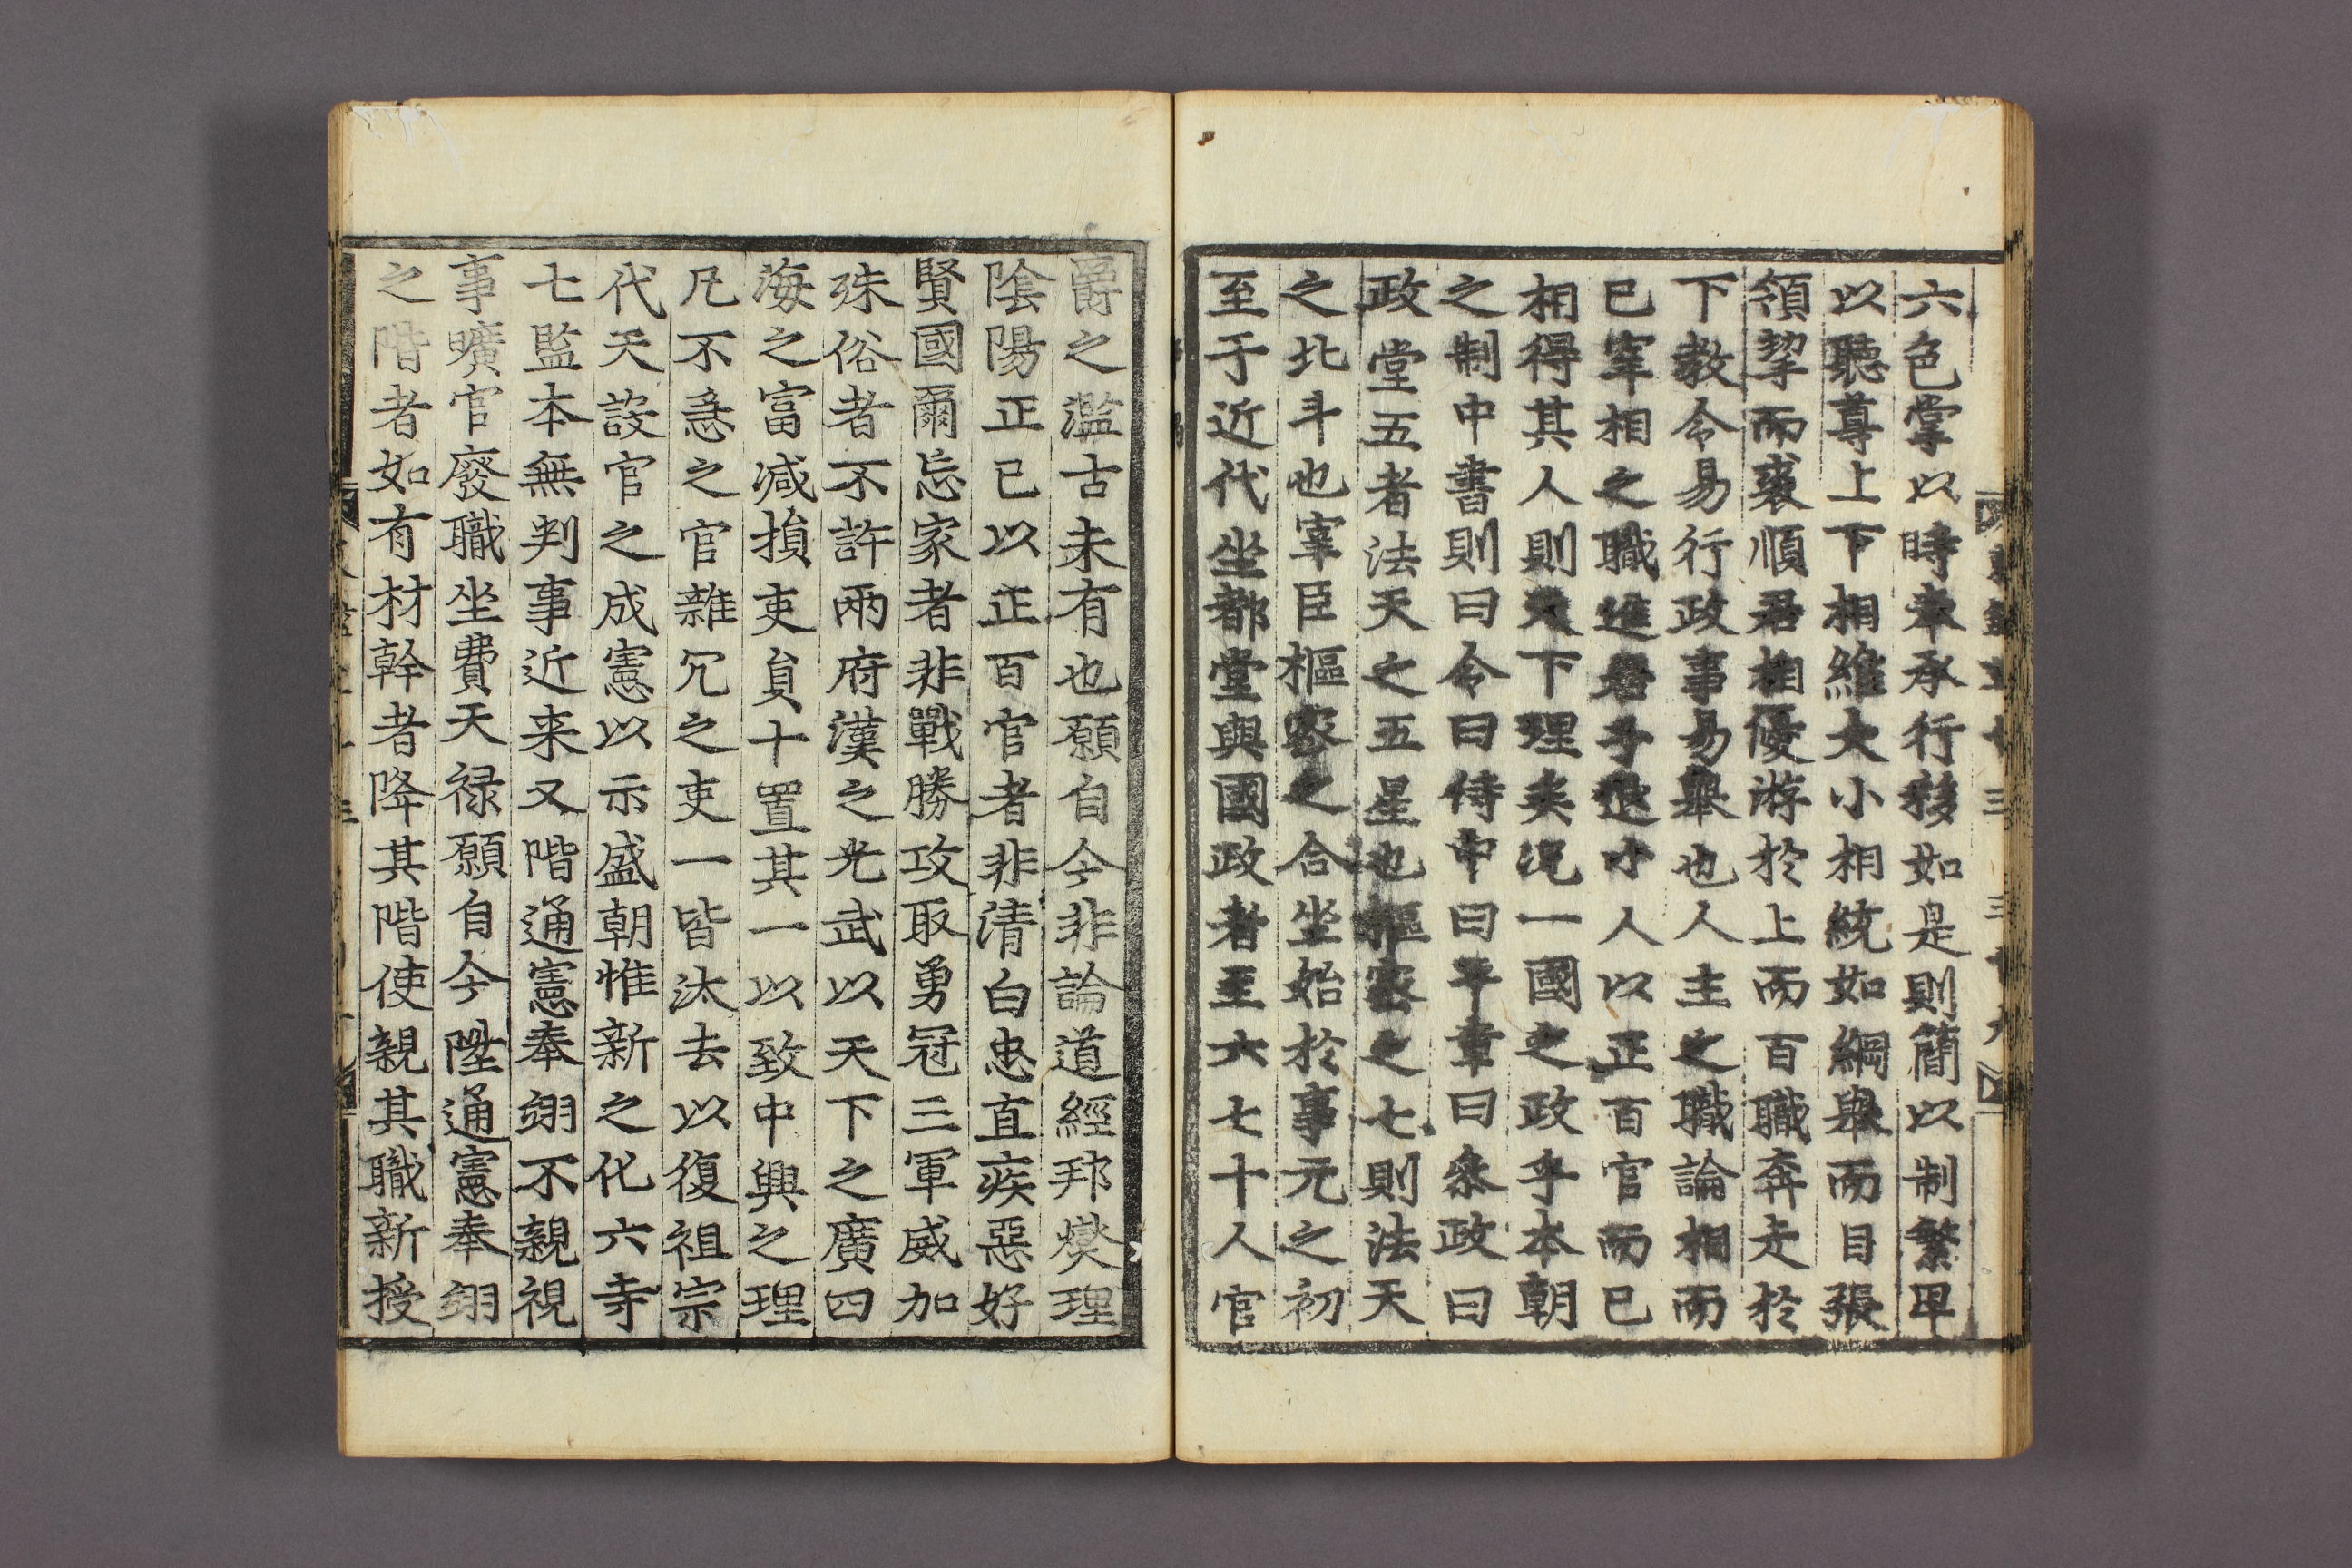 六色掌以時奉承行移如是則簡以制繁卑
以聽尊上下相維大小相統如綱舉而目張
領挈而裘順君相優游於上而百職奔走於
下教令易行政事易舉也人主之職論相而
已宰相之職進君子退小人以正百官而已
相得其人則天下理矣况一國之政乎本朝
之制中書則曰令曰侍中曰平章曰叅政曰
政堂五者法天之五星也樞密之七則法天
之北斗也宰臣樞密之合坐始於事元之初
至于近代坐都堂與國政者至六七十人官
爵之濫古未有也願自今非論道經邦燮理
陰陽正已以正百官者非清白忠直疾惡好
賢國爾忘家者非戰勝攻取勇冠三軍威加
殊俗者不許兩府漢之光武以天下之廣四
海之富减損吏負十置其一以致中興之理
凡不急之官雜冗之吏一皆汰去以復祖宗
代天設官之成憲以示盛朝惟新之化六寺
七監本無判事近来又階通憲奉翊不親視
事曠官廢職坐費天禄願自今陞通憲奉翊
之階者如有材幹者降其階使親其職新授